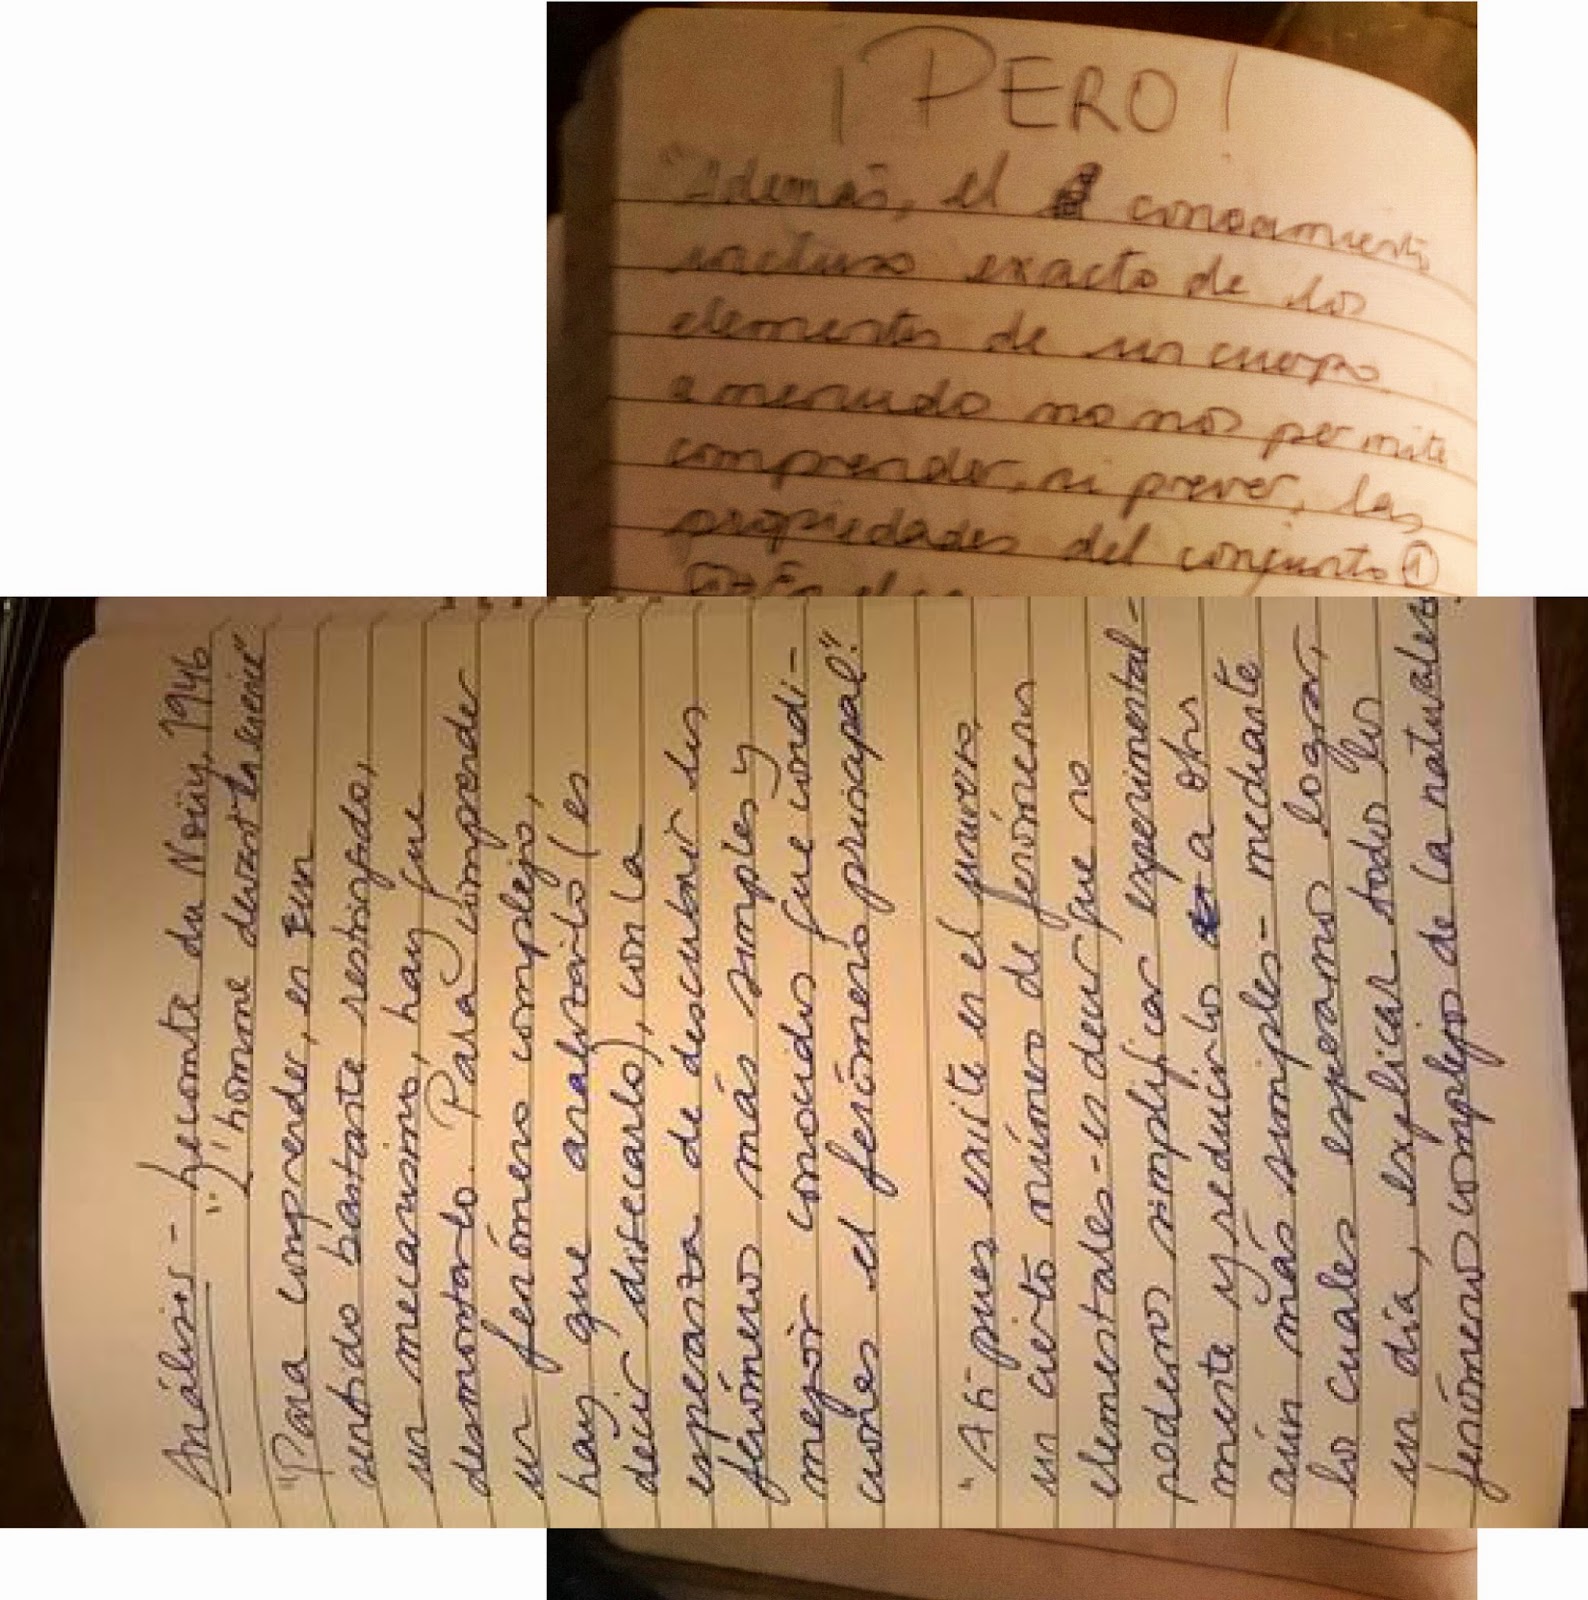 ¡PERO!
"Además, el conocimiento
incluso exacto de los
elementos de un cuerpo
a menudo no nos permite
comprender, ni prever, las
propiedades del conjunto ①
En el
Análisis - Lecomte du Noüy, 1946
"L'homme devant la science"
"Para comprender, en un
sentido bastante restringido,
un mecanismo, hay que
desmontarlo. Para comprender
un fenómeno complejo,
hay que analizarlo (es
decir disecarlo), con la
esperanza de descubrir los
fenómenos más simples y
mejor conocidos que condi-
cionen el fenómeno principal".
"Ahí pues existe en el universo
un cierto número de fenómenos
elementales - es decir que no
podemos simplificar experimental-
mente y reducirlos a otros
aún más simples - mediante
los cuales esperamos lograr,
un día, explicar todos los
fenómenos complejos de la naturaleza.